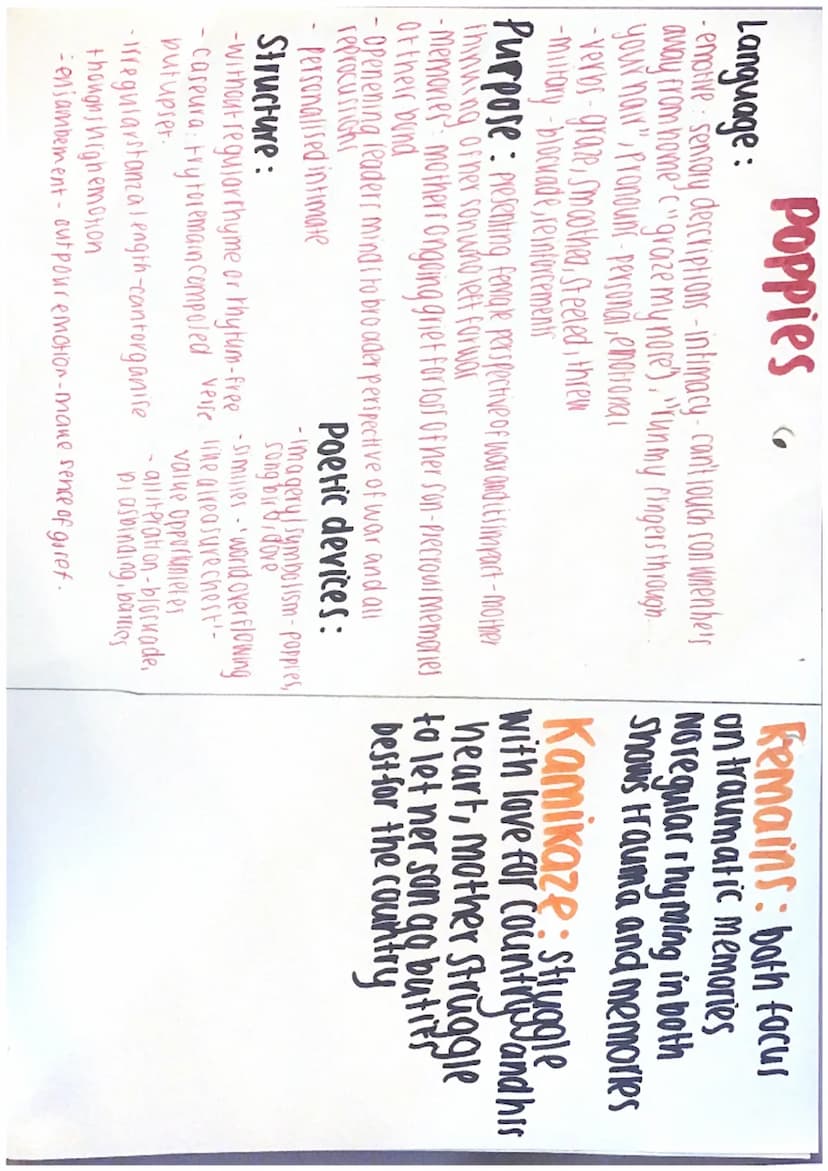 poppies
Language:
- emotive - sensory descriptions - intimacy - can't touch son when he's
away from home ("graze my nose"), "run my fingers through
your hair", Pronoun - personal, emotional
- verbs - graze, smoothed, steeled, threw
- military - blockade, reinforcements
Purpose: presenting female perspective of war and its impact - mother
thinking of her son who left for war
- memories - mothers ongoing grief for loss of her son - precioul memories
of their bond
- openening readers minds to broader perspective of war and all
reprocussions
- personalised intimate
Structure:
- without regular rhyme or rhytum - free
verse
- caseura: try to remain composed
but upset.
- irregular stanza length - cant organise
thoughts high emotion
- enjambement - outpour emotion - make sense of grief.
Poetic devices:
- Imagery/symbolism - poppies,
songbird, dove
- similies - 'world overflowing
like a treasure chest' -
value
- alliteration - blockade,
bias binding,
Remains: both focus
on traumatic memories
No regular rhyming in both
shows trauma and memories
Kamikaze: struggle
with love for country and his
heart, mother struggle
to let her son go but it's
best for the country